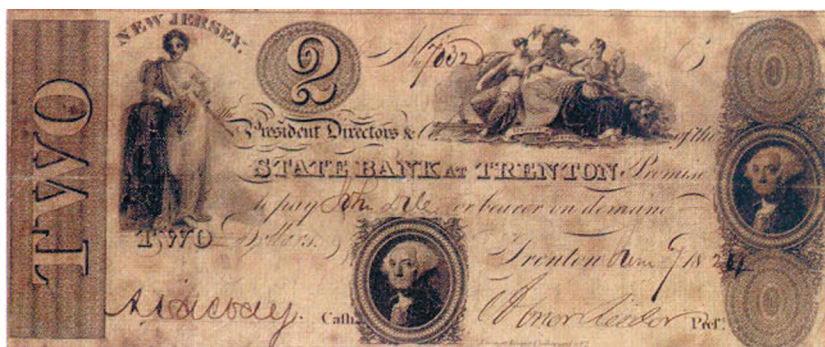 NEW JERSEY.
TWO
2
No 7032
C
The
President Directors & Co.
of the
STATE BANK AT TRENTON Promise
to pay or bearer on demand
TWO Dollars.
Trenton 1824
Cashr.
Prest.